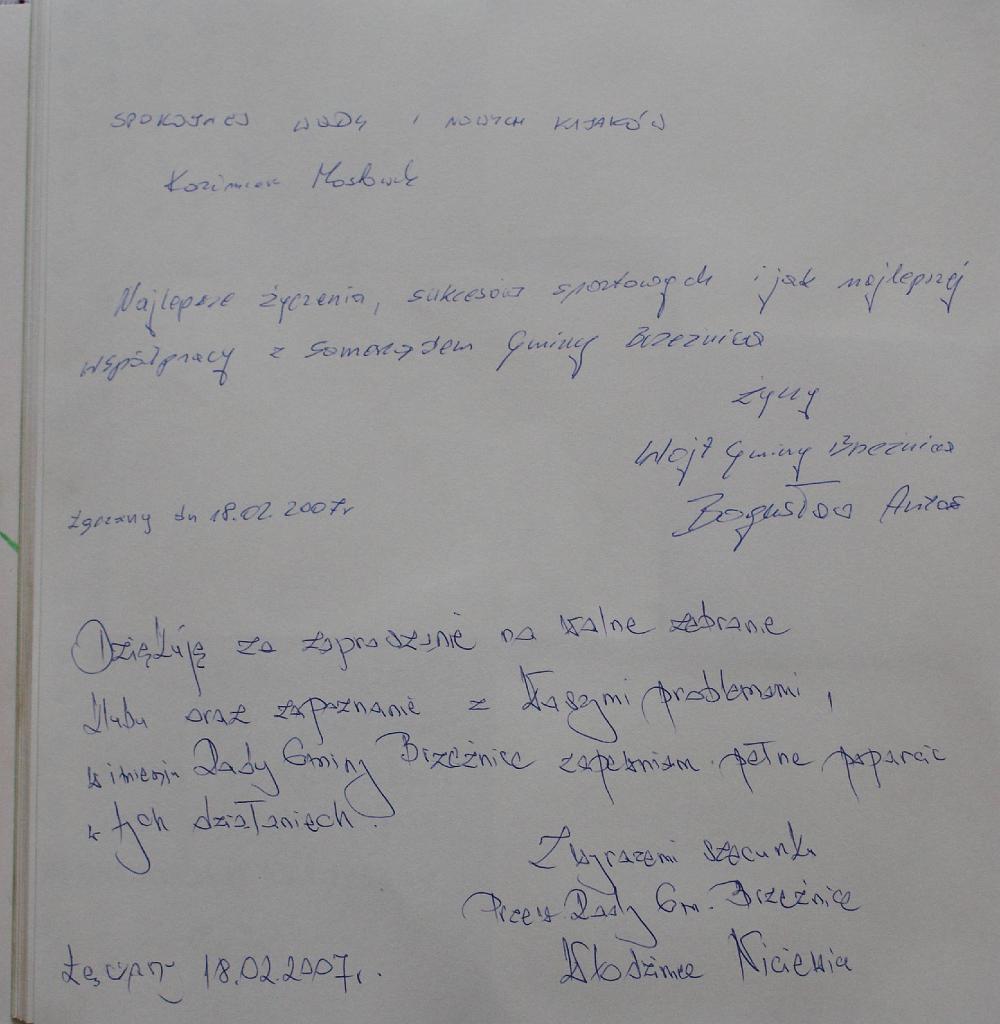 SPOKOJNEJ WODY I NOWYCH KAJAKÓW
Kazimierz
Najlepsze życzenia, sukcesów sportowych i jak najlepszej
współpracy z Samorządem Gminy Brzeźnica
życzy
Wójt Gminy Brzeźnica
Bogusław Antos
Łączany dn 18.02.2007r
Dziękuję za zaproszenie na walne zebranie
klubu oraz zapoznanie z Waszymi problemami,
w imieniu Rady Gminy Brzeźnica zapewniam pełne poparcie
w tych działaniach.
Z wyrazami szacunku
Przew. Rady Gm. Brzeźnica
Włodzimierz
Łączany 18.02.2007r.